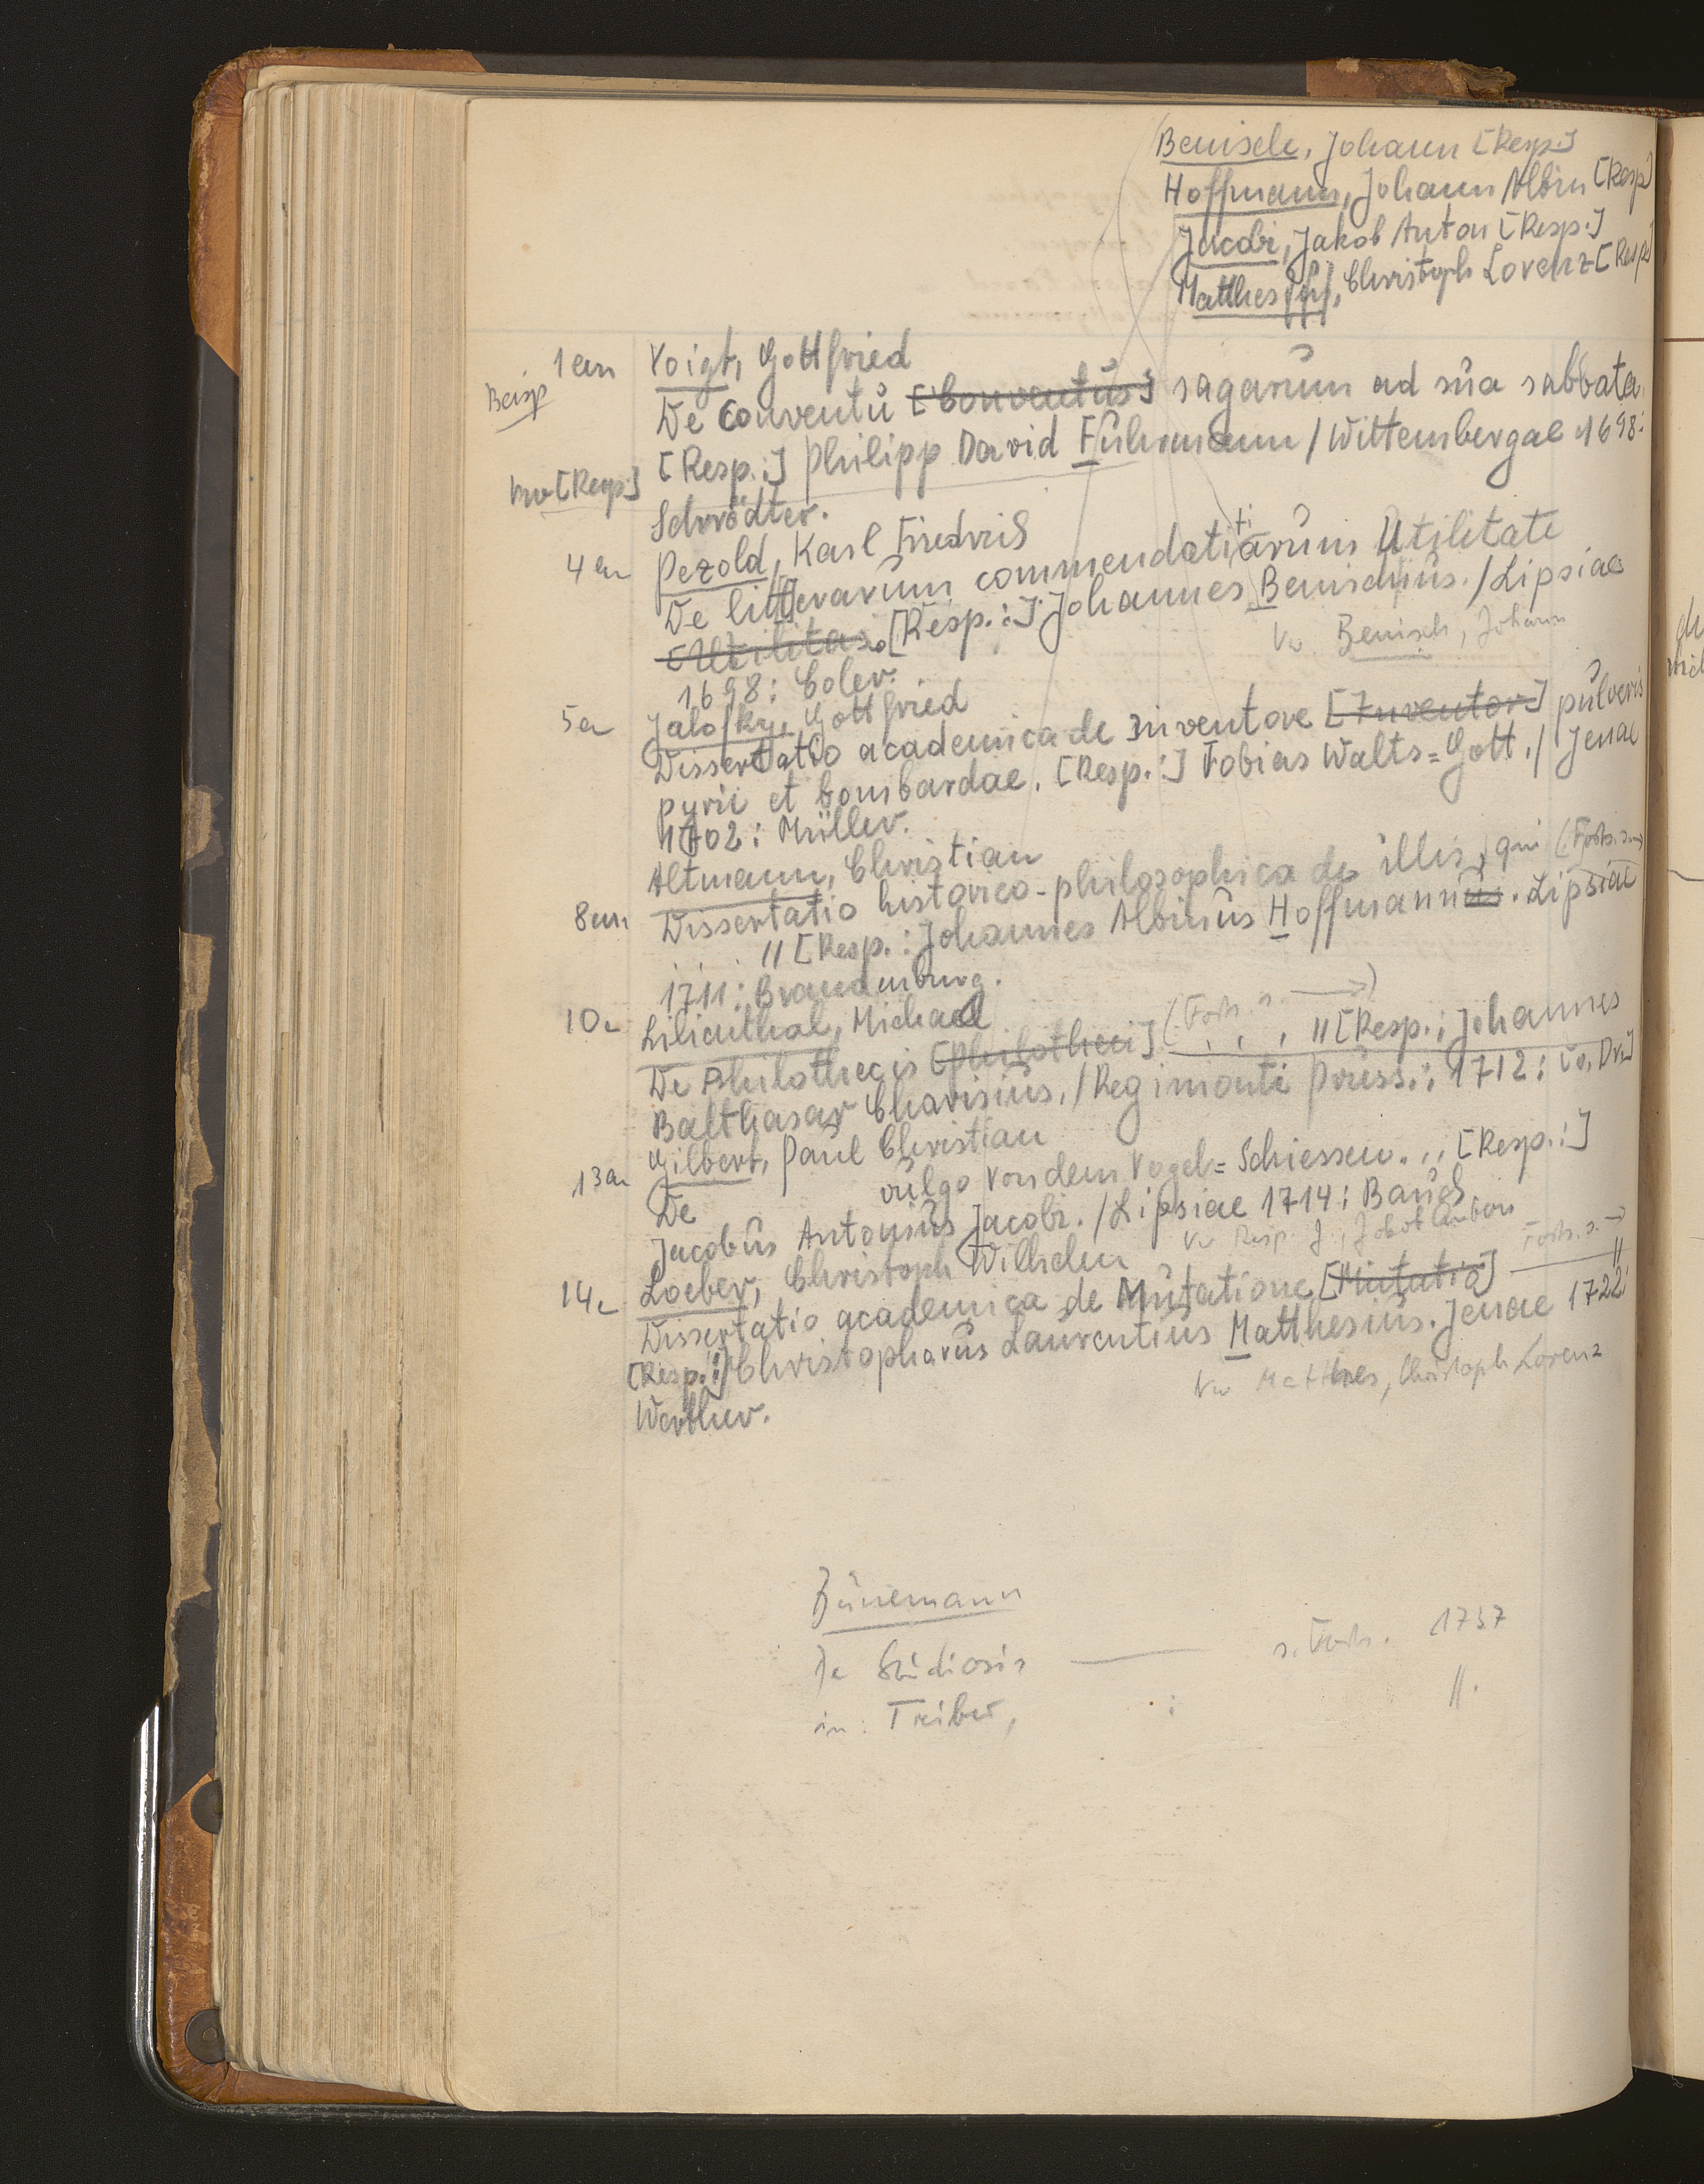 Benisch, Johann [Resp.]
Hoffmann, Johann Albin [Resp]
Jacobi, Jakob Anton [Resp.]
Matthes, Christoph Lorenz [Resp]
1 an Voigt, Gottfried
Beisp
De Conventu [Conventus] sagarum ad sua sabbata.
[Resp.:] Philipp David Fuhrmann / Wittembergae 1698:
[Resp.]
Schrödter.
4 an Pezold, Karl Friedrich
De litterarum commendatitiarum Utilitate
[Utilitas]. [Resp.:] Johannes Benischius. / Lipsiae
Vw Benisch, Johann
1698: Coler.
5 an Jalofky, Gottfried
Dissertatio academica de Inventore [Inventor] pulveris
pyrii et bombardae. [Resp.:] Tobias Walts=Gott. / Jenae
1702: Müller.
Altmann, Christian
8 an Dissertatio historico-philosophica de illis, qui (Forts. s.
. . . // [Resp.: Johannes Albinus Hoffmannus. Lipsiae
1711: Brandenburg.
10 an Lilienthal, Michael
De Philothecis [Philotheci] (Forts. s. →)
. . . // [Resp.: Johannes
Balthasar Charisius. / Regimonti Pruss.: 1712: [o. Dr.]
13 an Gilbert, Paul Christian
De vulgo Von dem Vogel=Schiessen. .. [Resp.:]
Jacobus Antonius Jacobi. / Lipsiae 1714: Bauch
Vw Resp. J., Jakob Anton
14 an Loeber, Christoph Wilhelm
Forts. s. →
Dissertatio academica de Mutatione [Mutatio] //
[Resp.:] Christophorus Laurentius Matthesius. Jenae 1722:
Vw Matthes, Christoph Lorenz
Werther.
Bünemann
De Studiosis — s. Forts. 1737
in: Triber, : //.